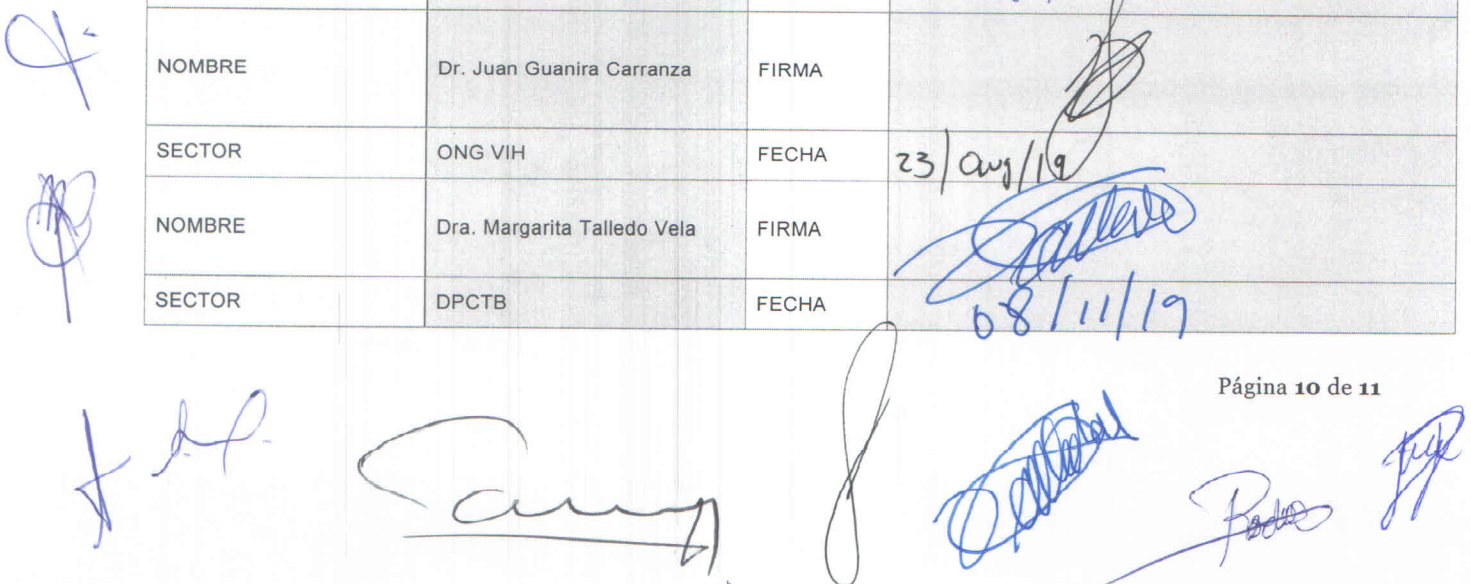 NOMBRE Dr. Juan Guanira Carranza FIRMA
SECTOR ONG VIH FECHA 23/aug/19
NOMBRE Dra. Margarita Talledo Vela FIRMA Talledo
SECTOR DPCTB FECHA 08/11/19
Página 10 de 11